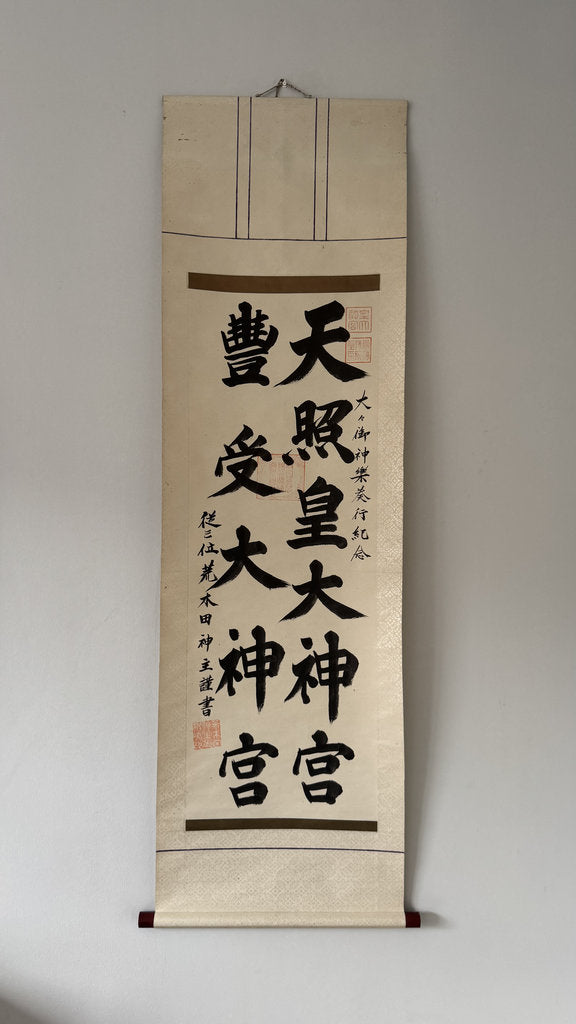 大々御神樂奏行紀念
天照皇大神宮
豐受大神宮
從三位荒木田神主謹書